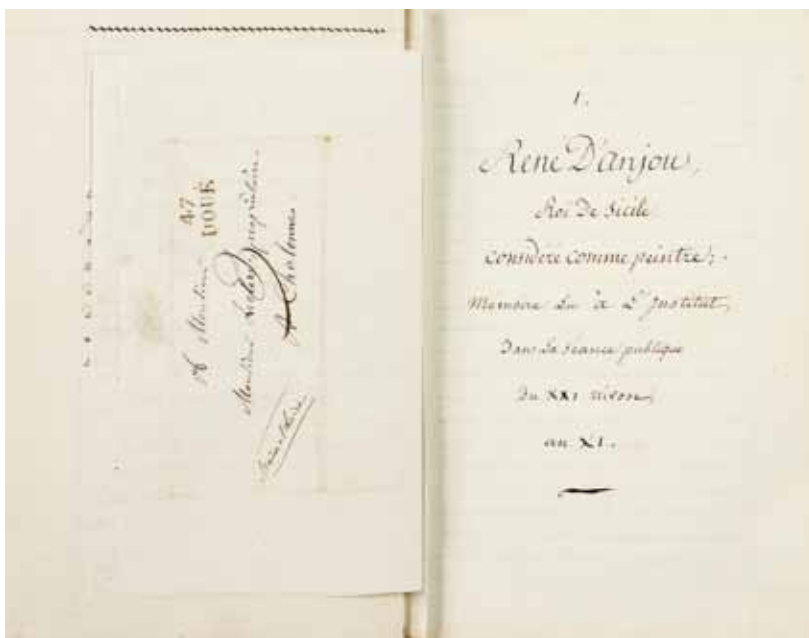 47
DOUÉ
A Monsieur
Monsieur Leclerc, propriétaire
A Chalonnes
Maine et Loire
1.
René D'anjou,
Roi De Sicile
considéré comme peintre;
Mémoire Lu à L'Institut,
Dans La séance publique
Du XXI nivose,
an XI.